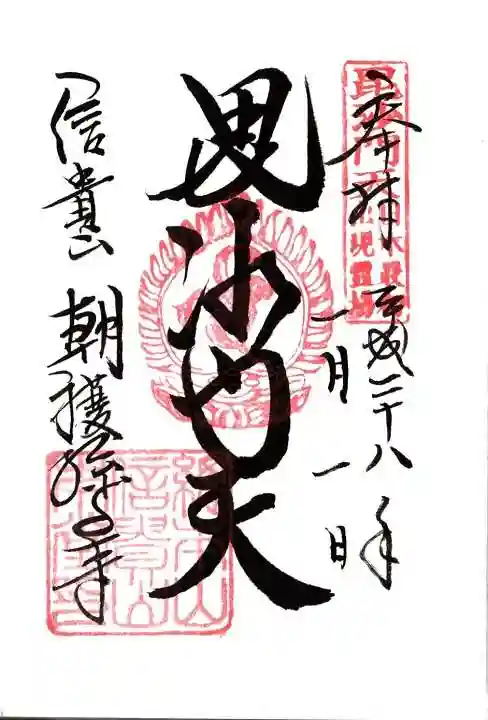 奉拝
平成二十八年
一月一日
毘沙門天
信貴山 朝護孫子寺